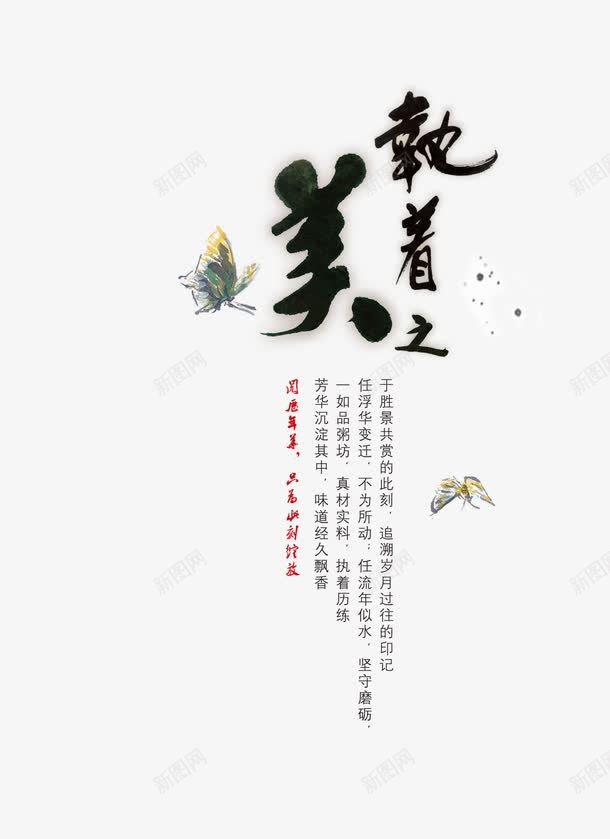 執着之
美
于胜景共赏的此刻，追溯岁月过往的印记
任浮华变迁，不为所动；任流年似水，坚守磨砺，
一如品粥坊，真材实料，执着历练
芳华沉淀其中，味道经久飘香
阅历年华，只为此刻绽放
新图网
新图网
新图网
新图网
新图网
新图网
新图网
新图网
新图网
新图网
新图网
新图网